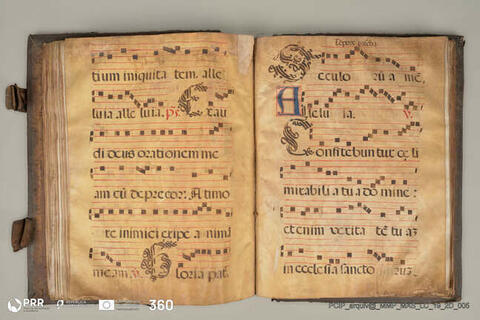 tium iniquita tem. alle
luia alle luia. ps Exau
di deus orationem me
am cū de precor: A timo
re inimici eripe a nimā
meam. Gloria pat.
Tepore pascha
seculo rū a mē.
Alle lu ia.
Confitebuntur celi
mirabili a tu a do mine:
et enim verita tē tu aȝ
in ecclesia sancto
PRR
360
PCIP_arquivo_MMP_MAS_LC_19_2D_006